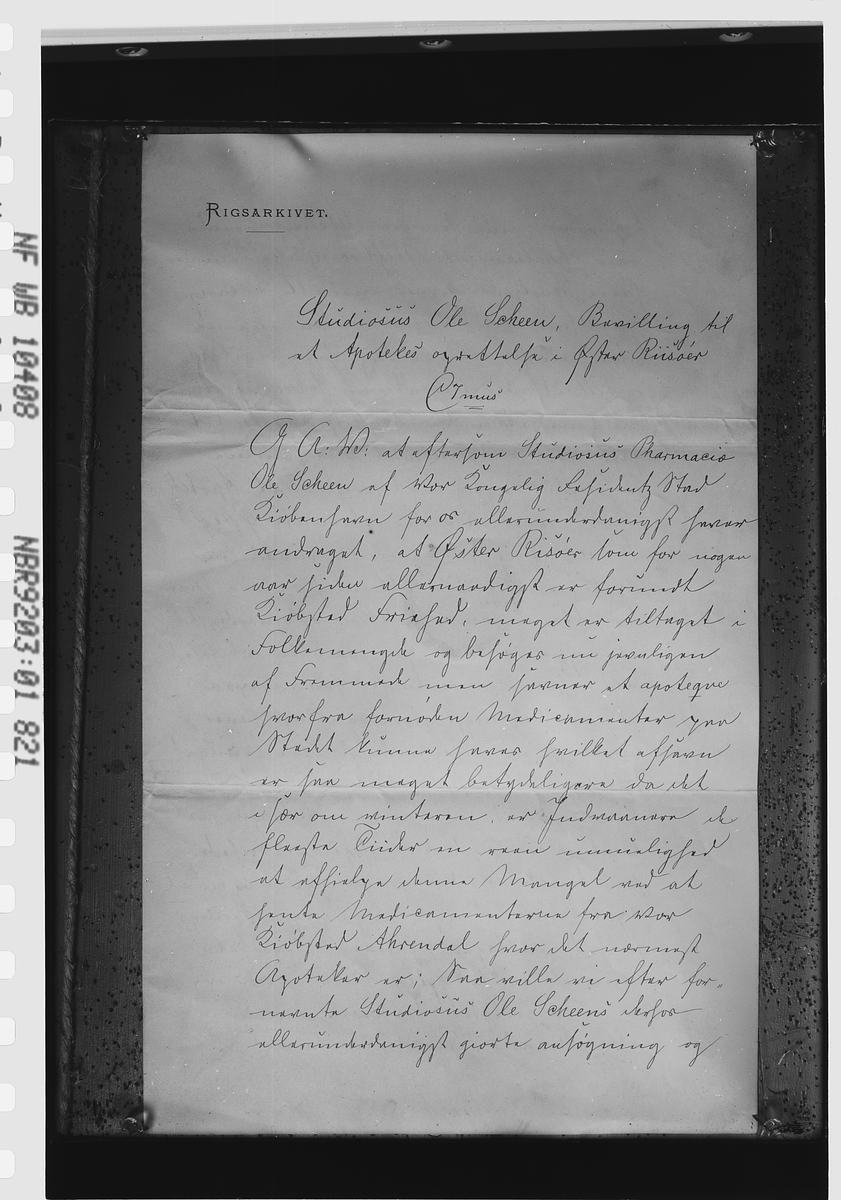 RIGSARKIVET.
Studiosus Ole Scheen, Bevilling til
et Apotekes oprettelse i Øster Riisøer
G A: W: at eftersom Studiosus Pharmaciæ
Ole Scheen af Vor Kongelig Residentz Stad
Kiöbenhavn for os allerunderdanigst haver
andraget, at Øster Risöer som for nogen
aar siden allernaadigst er forundt
Kiöbsted Friehed, meget er tiltaget i
Folkemengde og besöges nu jevnligen
af Fremmede men savner et apoteque
hvorfra fornöden Medicamenter paa
Stedet kunne haves hvilket afsavn
er saa meget betydeligere da det
i sær om vinteren, er Indvaanere de
fleeste Tiider en reen umuelighed
at afhielpe denne Mangel ved at
hente Medicamenterne fra vor
Kiöbsted Ahrendal hvor det nærmest
Apoteker er; Saa ville vi efter for-
nevnte Studiosus Ole Scheens derhos
allerunderdanigst giorte ansögning og
NF WB 10408
NBR9203:01 821